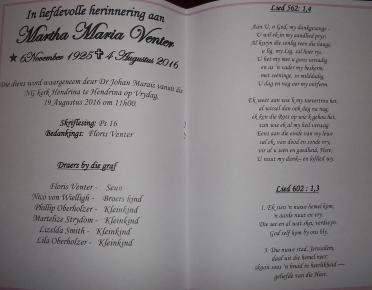 In liefdevolle herinnering aan
Martha Maria Venter
★ 6 November 1925 ✞ 4 Augustus 2016
Die diens word waargeneem deur Dr Johan Marais vanuit die
NG kerk Hendrina te Hendrina op Vrydag,
19 Augustus 2016 om 11h00.
Skriflesing: Ps 16
Bedankings: Floris Venter
Draers by die graf
Floris Venter - Seun
Nico von Wielligh - Broers kind
Phillip Oberholzer - Kleinkind
Martelize Strydom - Kleinkind
Lizelda Smith - Kleinkind
Lila Oberholzer - Kleinkind
Lied 562: 1,4
Aan U, o God, my dankgesange -
U sal ek in my aandlied prys!
Al kwyn die sonlig teen die hange,
u lig, my Lig, sal hier rys.
U het my met u guns omvang
en as 'n vader my
met seëninge, so
U dag en nag oor my ontferm.
Ek weet aan wie ek my toevertrou het,
al wissel dan ook dag en nag;
ek ken die Rots op wie ek gebou het,
van wie ek al my heil verwag
Eens aan die einde van my lewe
sal ek, van dood en sonde vry,
vir al u sorg en goedheid, Here,
U nuut my dank- en loflied wy.
Lied 602 : 1,3
1. Ek sien 'n nuwe hemel kom,
'n aarde nuut en vry.
Die see en al wat skei, verdwyn.
God self kom by ons bly.
3. Die nuwe stad, Jerusalem,
daal uit die hemel neer;
skoon soos 'n bruid in heerlikheid —
geliefde van die Heer.